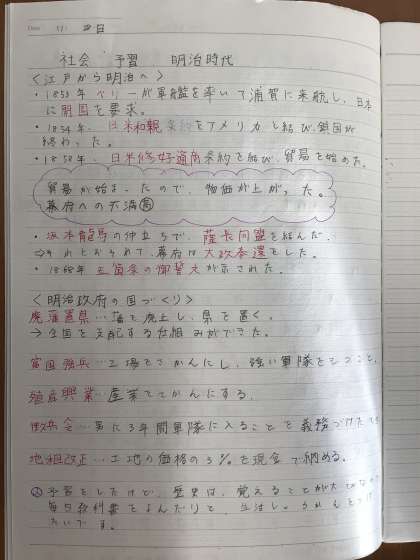 社会 予習 明治時代
〈江戸から明治へ〉
・1853年 ペリーが軍艦を率いて浦賀に来航し、日本
に開国を要求。
・1854年、日米和親条約をアメリカと結び、鎖国が
終わった。
・1858年、日米修好通商条約を結び、貿易を始めた。
貿易が始まったので、物価が上がった。
幕府への大満高
・坂本龍馬の仲立ちで、薩長同盟を結んだ。
⇒それにおされて、幕府は大政奉還をした。
・1868年 五箇条の御誓文が示された。
〈明治政府の国づくり〉
廃藩置県…藩を廃止し、県を置く。
→全国を支配する仕組みができた。
富国強兵…工場をさかんにし、強い軍隊をもつこと。
殖産興業…産業をさかんにする。
徴兵令…男に3年間軍隊に入ることを義務づけた
地租改正…土地の価格の3%を現金で納める。
予習をしたけど、歴史は、覚えることが
毎日教科書をよんだりと、
たいです。